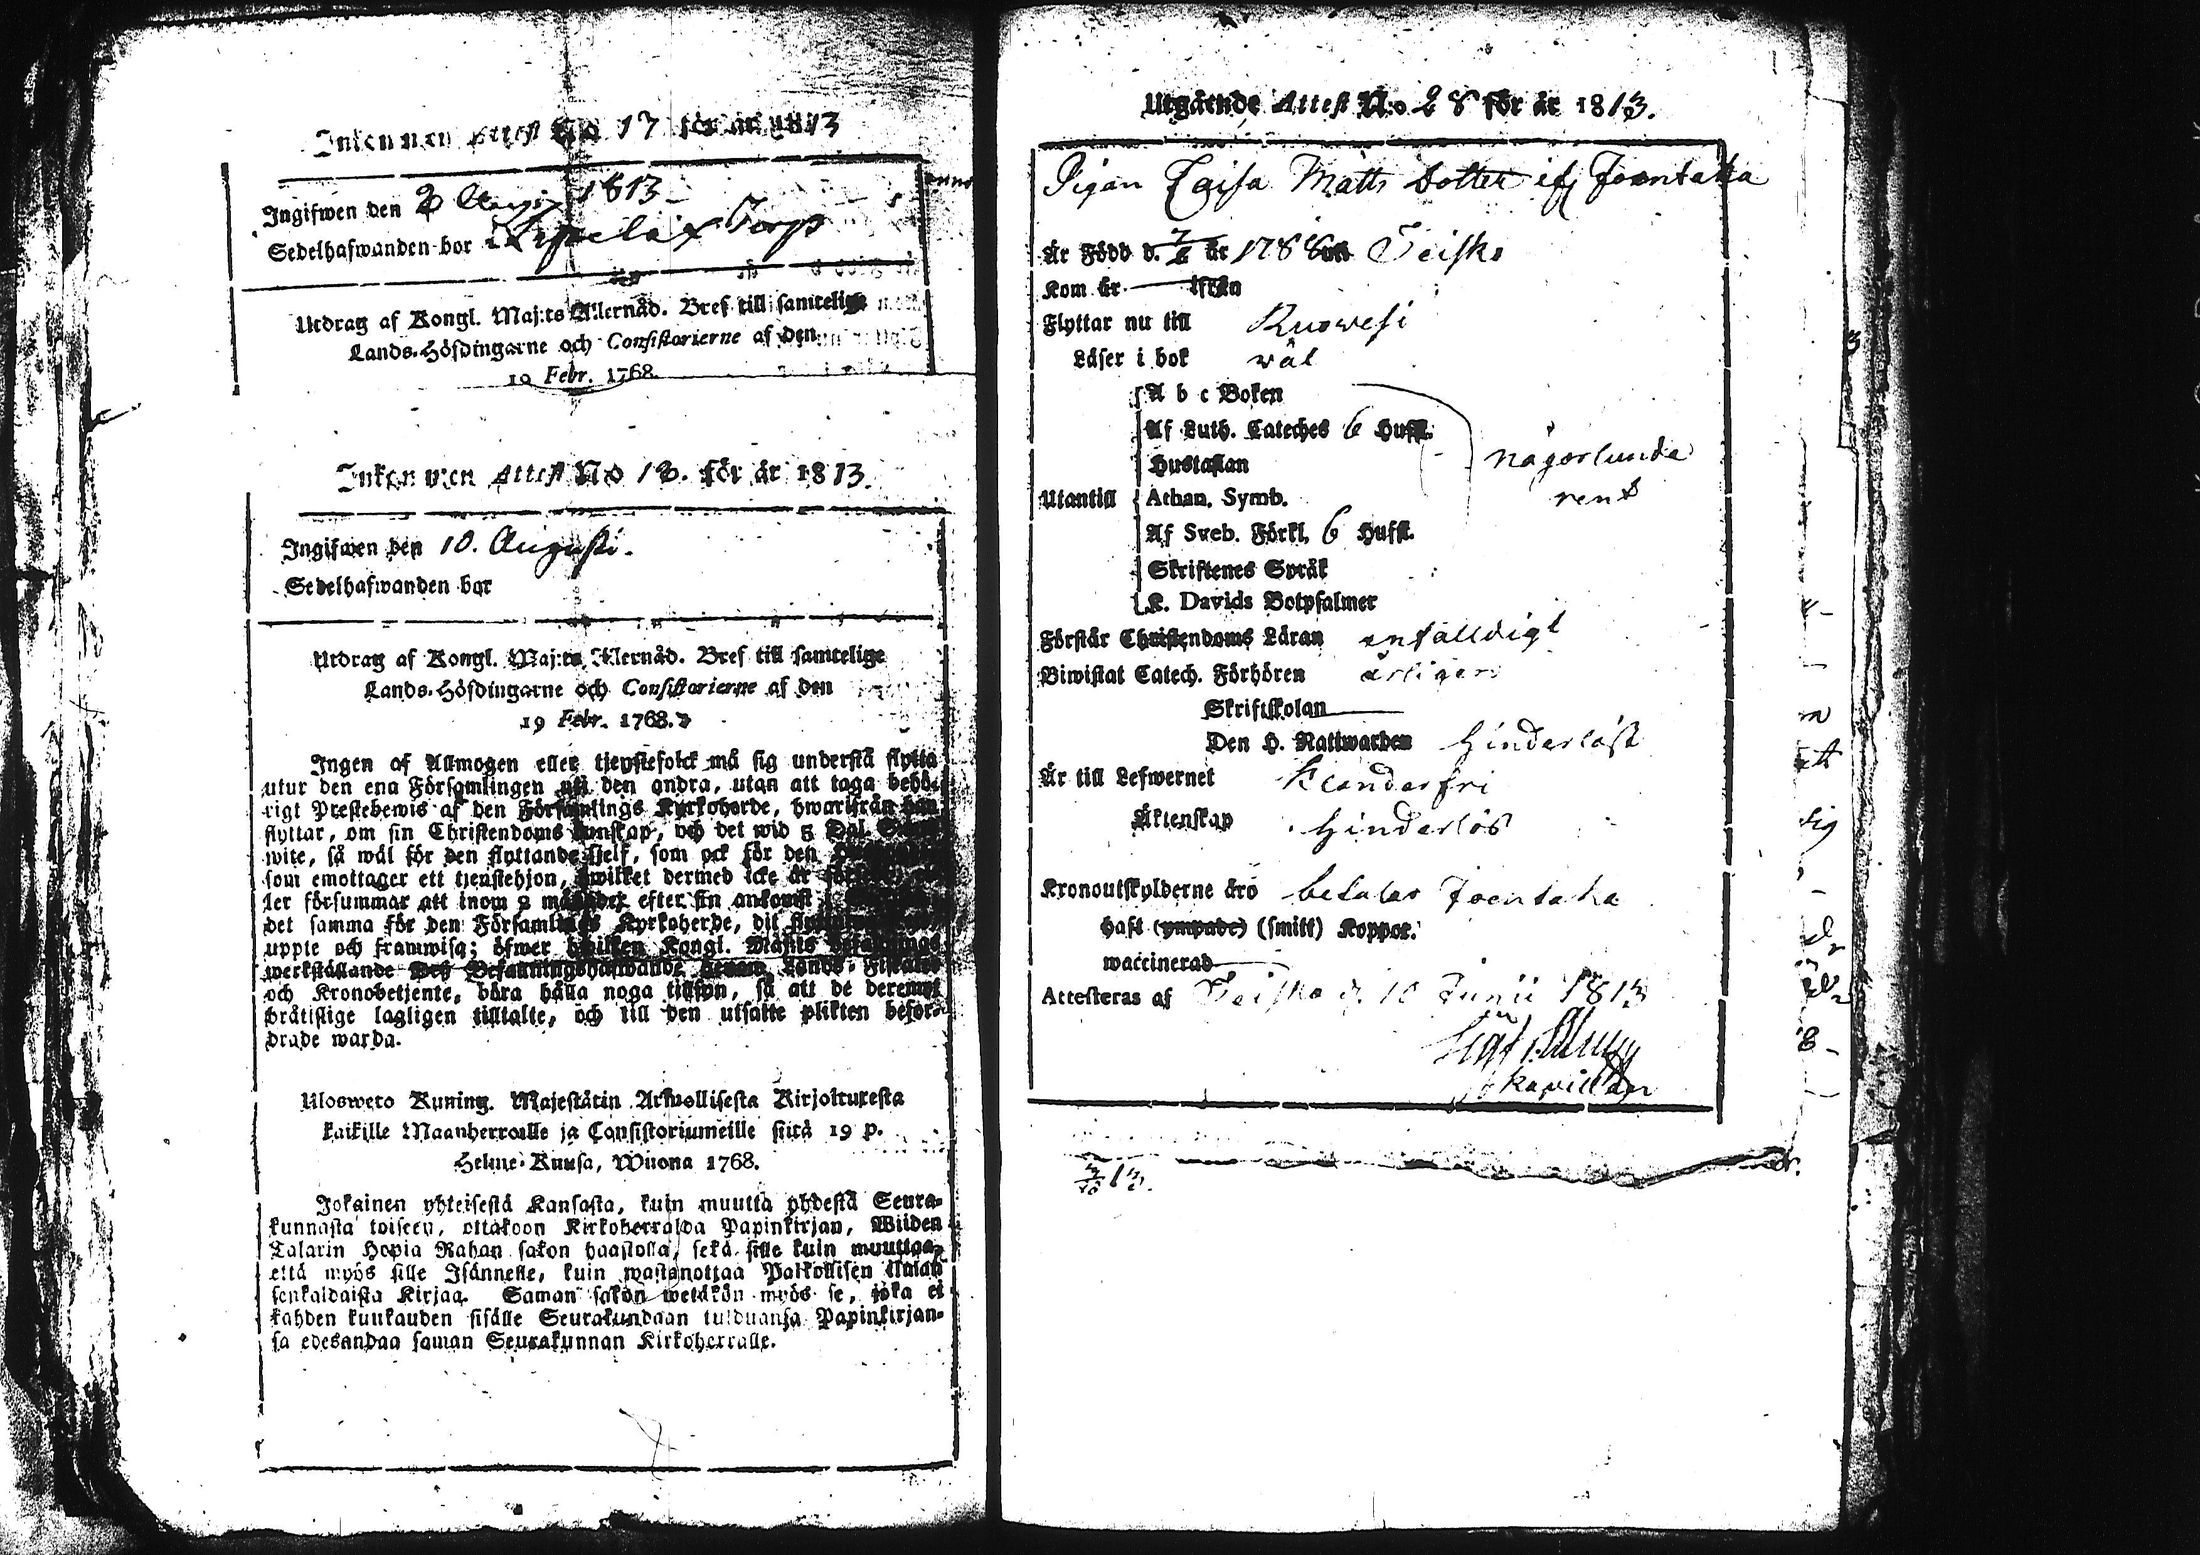 Inkommen Attest No 17 för år 1813
Ingifwen den 2 1813
Sedelhafwanden bor Torp
Utdrag af Kongl. Maj:ts Allernåd. Bref till samtelige
Lands-Höfdingarne och Consistorierne af den
19 Febr. 1768.
Inkommen Attest No 18. för år 1813.
Ingifwen den 10. Augusti.
Sedelhafwanden bor
Utdrag af Kongl. Maj:ts Allernåd. Bref till samtelige
Lands-Höfdingarne och Consistorierne af den
19 Febr. 1768.
Ingen af Allmogen eller tjenstefolck må sig understå flytta
utur den ena Församlingen uti den andra, utan att taga behö-
rigt Prestebewis af den Församlings Kyrkoherde, hwarifrån han
flyttar, om sin Christendoms kunskap, och det wid 5 Dal. Silf:
wite, så wäl för den flyttande sjelf, som ock för den
som emottager ett tjenstehjon, hwilket dermed icke är
ler försummar att inom 2 månader efter sin ankomst
det samma för den Församlings Kyrkoherde, dit
uppte och framwisa; öfwer hwilken Kongl. Maj:ts Befallnings
werkställande Dess Befallningshafwande Lands-Fiskaler
och Kronobetjente, böra hålla noga tillsyn, så att de deremot
bråtislige lagligen tilltalte, och till den utsatte plikten befor-
drade warda.
Ulosweto Kuning. Majestätin Armollisesta Kirjoituresta
kaikille Maanherroille ja Consistoriumeille siitä 19 p.
Helme-Kuusa, Wuona 1768.
Jokainen yhteisestä Kansasta, kuin muutta yhdestä Seura-
kunnasta toiseen, ottakoon Kirkoherralda Papinkirjan, Wiiden
Talarin Hopia Rahan sakon haastolla, sekä sille kuin muuttaa,
että myös sille Isännelle, kuin wastanottaa Palkollisen ilman
senkaldaista Kirjaa. Saman sakon wetäkön myös se, joka ei
kahden kuukauden sisälle Seurakundaan tulduansa Papinkirjan-
sa edesandaa saman Seurakunnan Kirkoherralle.
Utgående Attest No 28 för år 1813.
Pigan Caisa Matts dotter ifr Joentaka
Är Född d. 7/6 år 1788 uti Teisko
Kom år — ifrån
Flyttar nu till Ruowesi
Läser i bok wäl
A b c Boken
Af Luth. Cateches 6 Hufst.
Hustaflan
någorlunda
Utantill Athan. Symb.
rent
Af Sveb. Förkl. 6 Hufst.
Skriftenes Språk
K. Davids Botpsalmer
Förstår Christendoms Läran enfalldigt
Biwistat Catech. Förhören årligen
Skriftskolan —
Den H. Nattwarden hinderlöst
Är till Lefwernet klanderfri
Äktenskap hinderlös
Kronoutskylderne äro betalas Joentaka
haft (ympade) (smitt) Koppor.
waccinerad —
Attesteras af Teisko d. 10 Junii 1813
kapellan